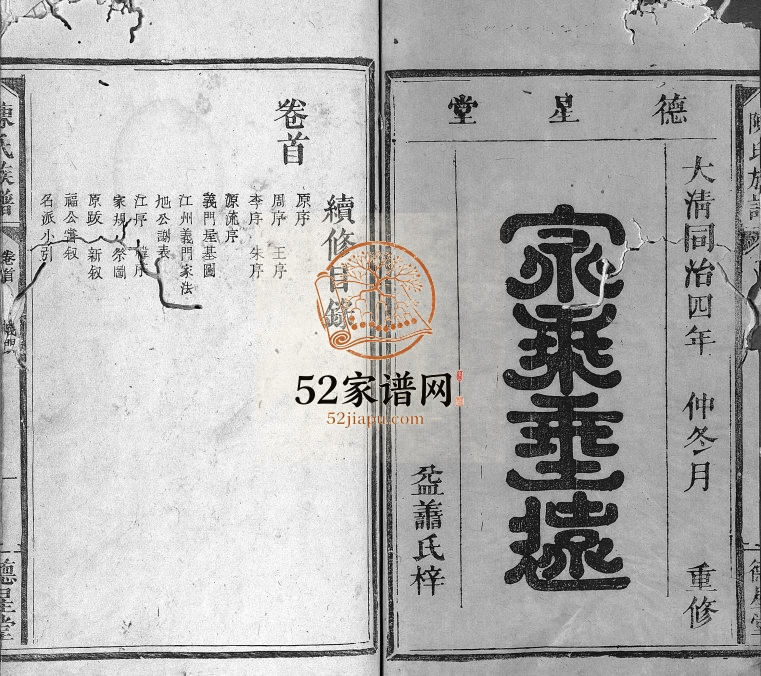 德星堂
大清同治四年 仲冬月 重修
家乘垂遠
蕭氏梓
陳氏族譜
德星堂
卷首
續修目錄
原序
周序 王序
李序 朱序
源流序
義門屋基圖
江州義門家法
旭公謝表
江序 禮序
家規 祭圖
原跋 新叙
福公嘗叙
名派小引
陳氏族譜
卷首
義門
一
德星堂
52家谱网
52jiapu.com